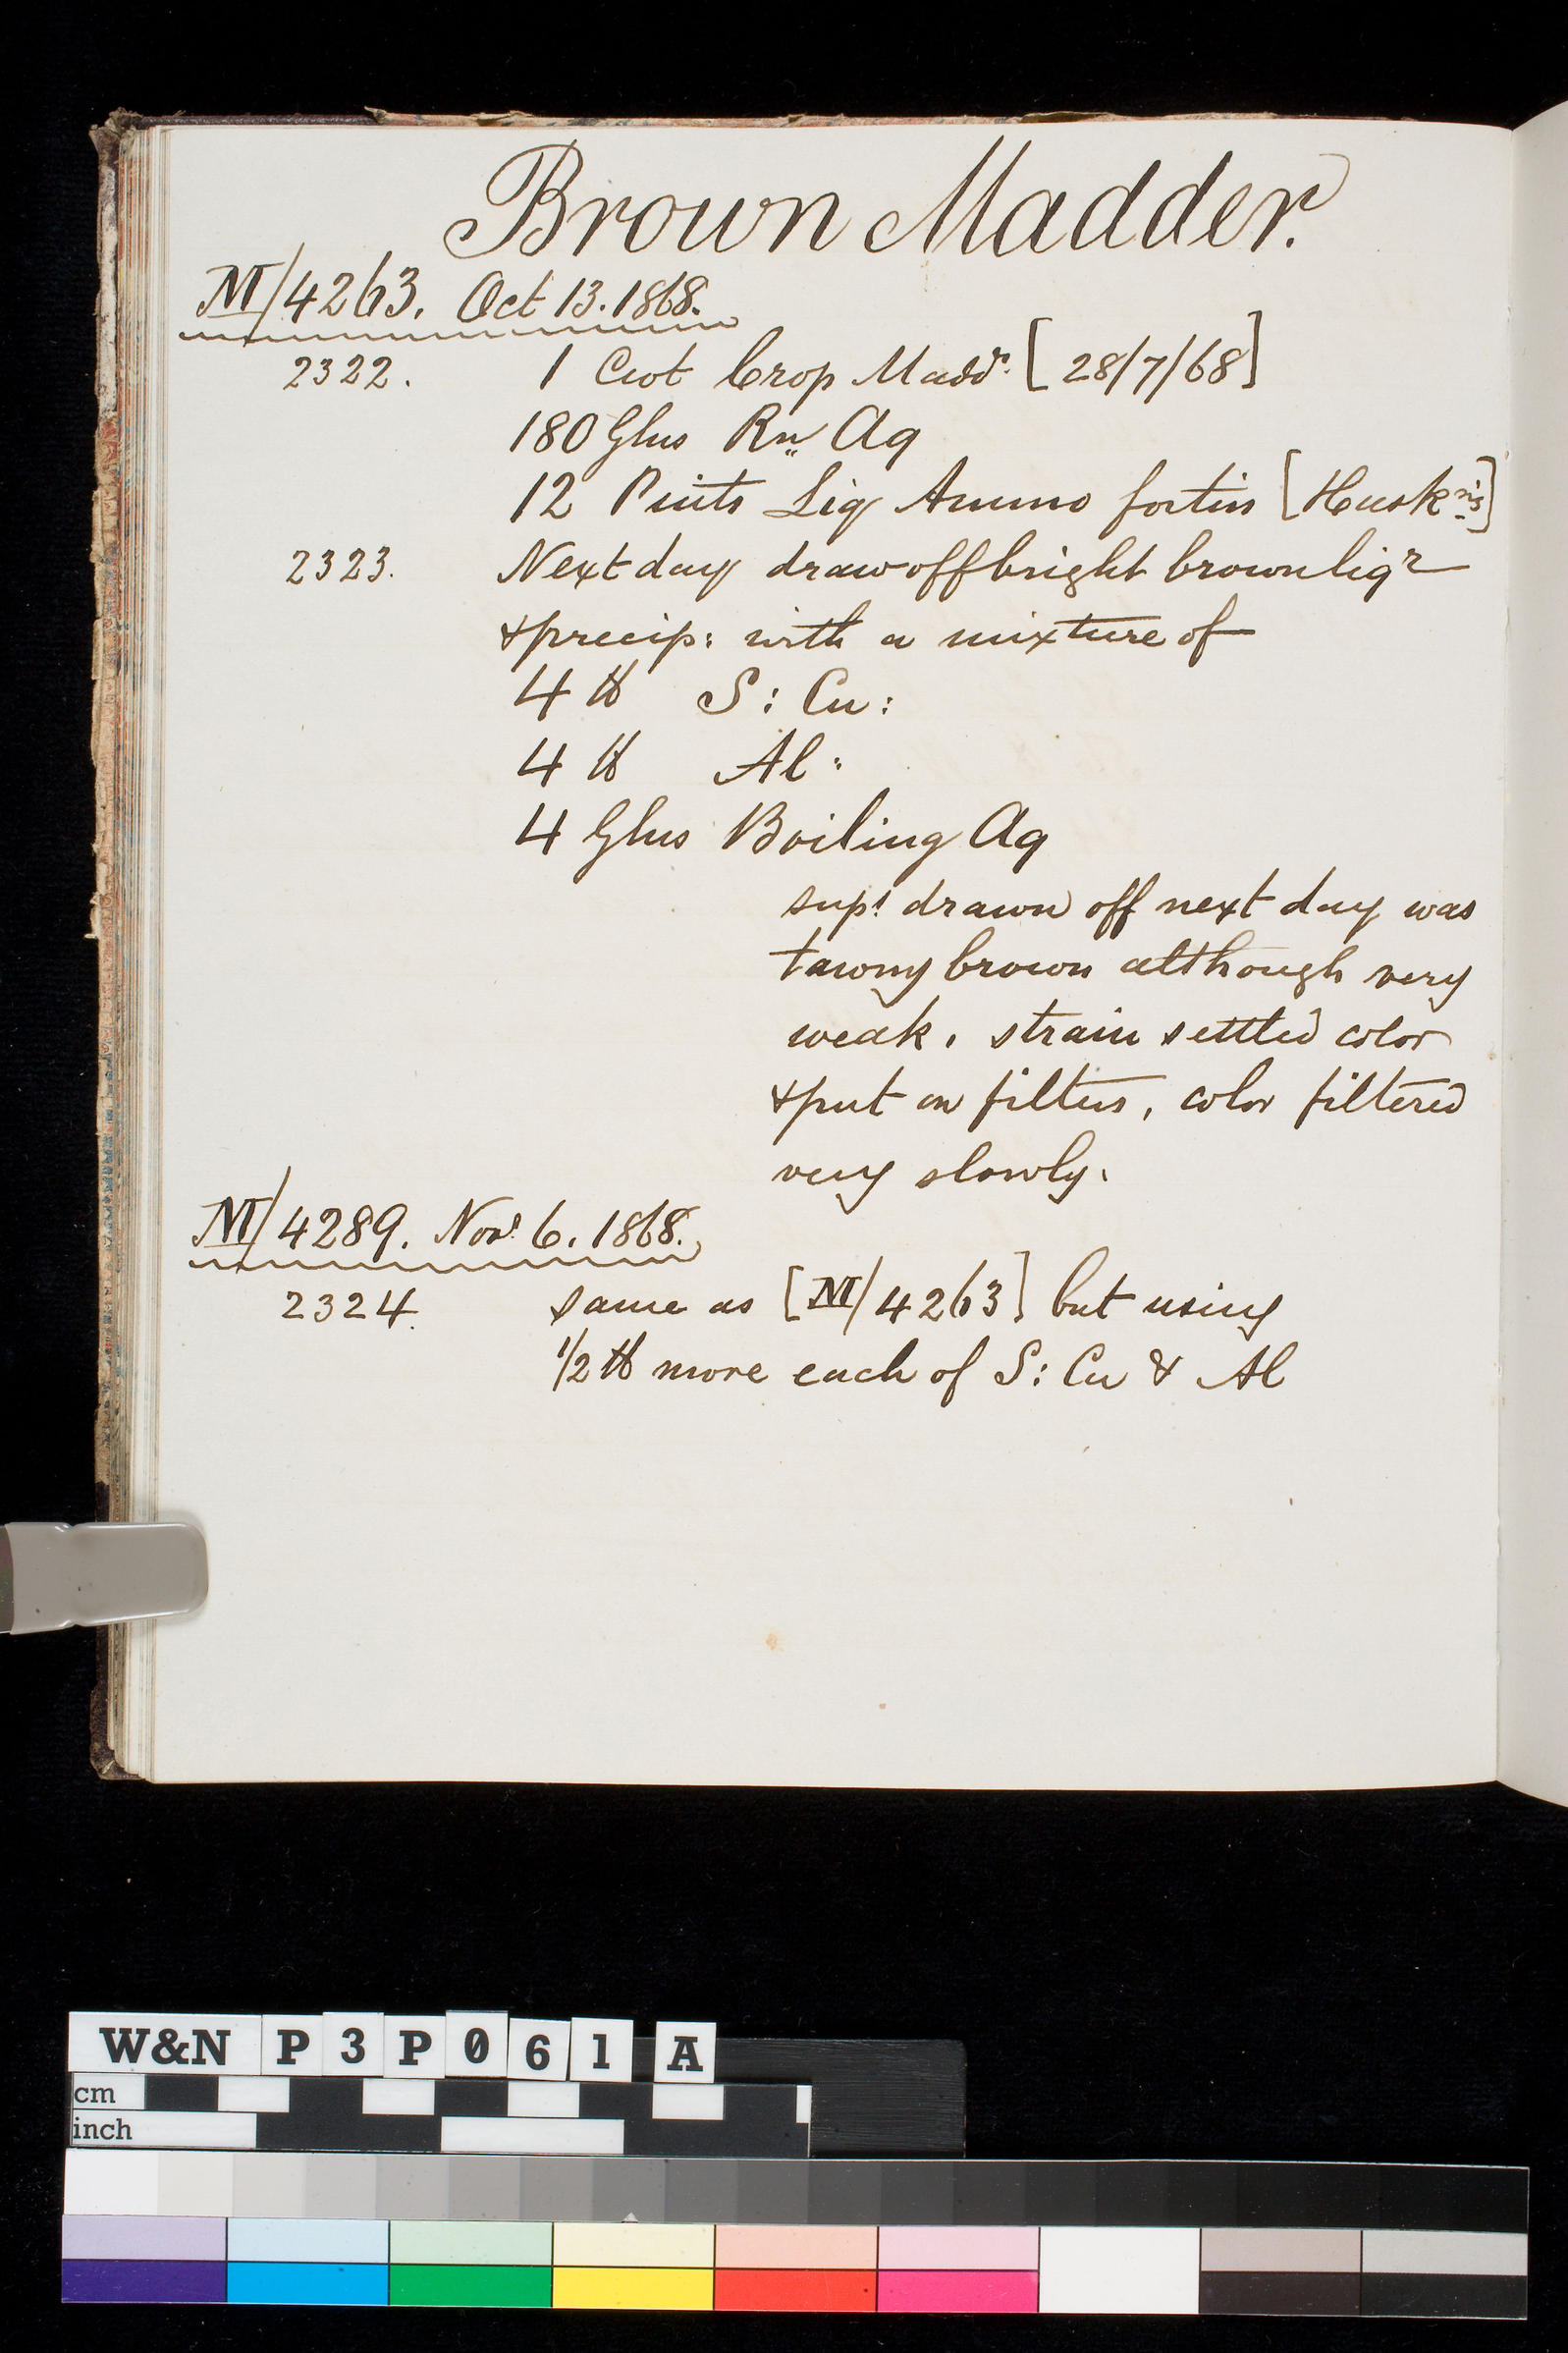 Brown Madder.
M/4263. Oct 13. 1868.
2322. 1 Cwt Crop Madd.r [28/7/68]
180 Glns Rn Aq
12 Pints Liq Ammo fortis [Husk]
2323. Next day draw off bright brown liqr
& precip: with a mixture of
4 lb S: Cu:
4 lb Al:
4 Glns Boiling Aq
supt drawn off next day was
tawny brown although very
weak, strain settled color
& put on filters, color filtered
very slowly.
M/4289. Novr 6. 1868.
2324. same as [M/4263] but using
1/2 lb more each of S: Cu & Al
W&N P3P061A
cm
inch